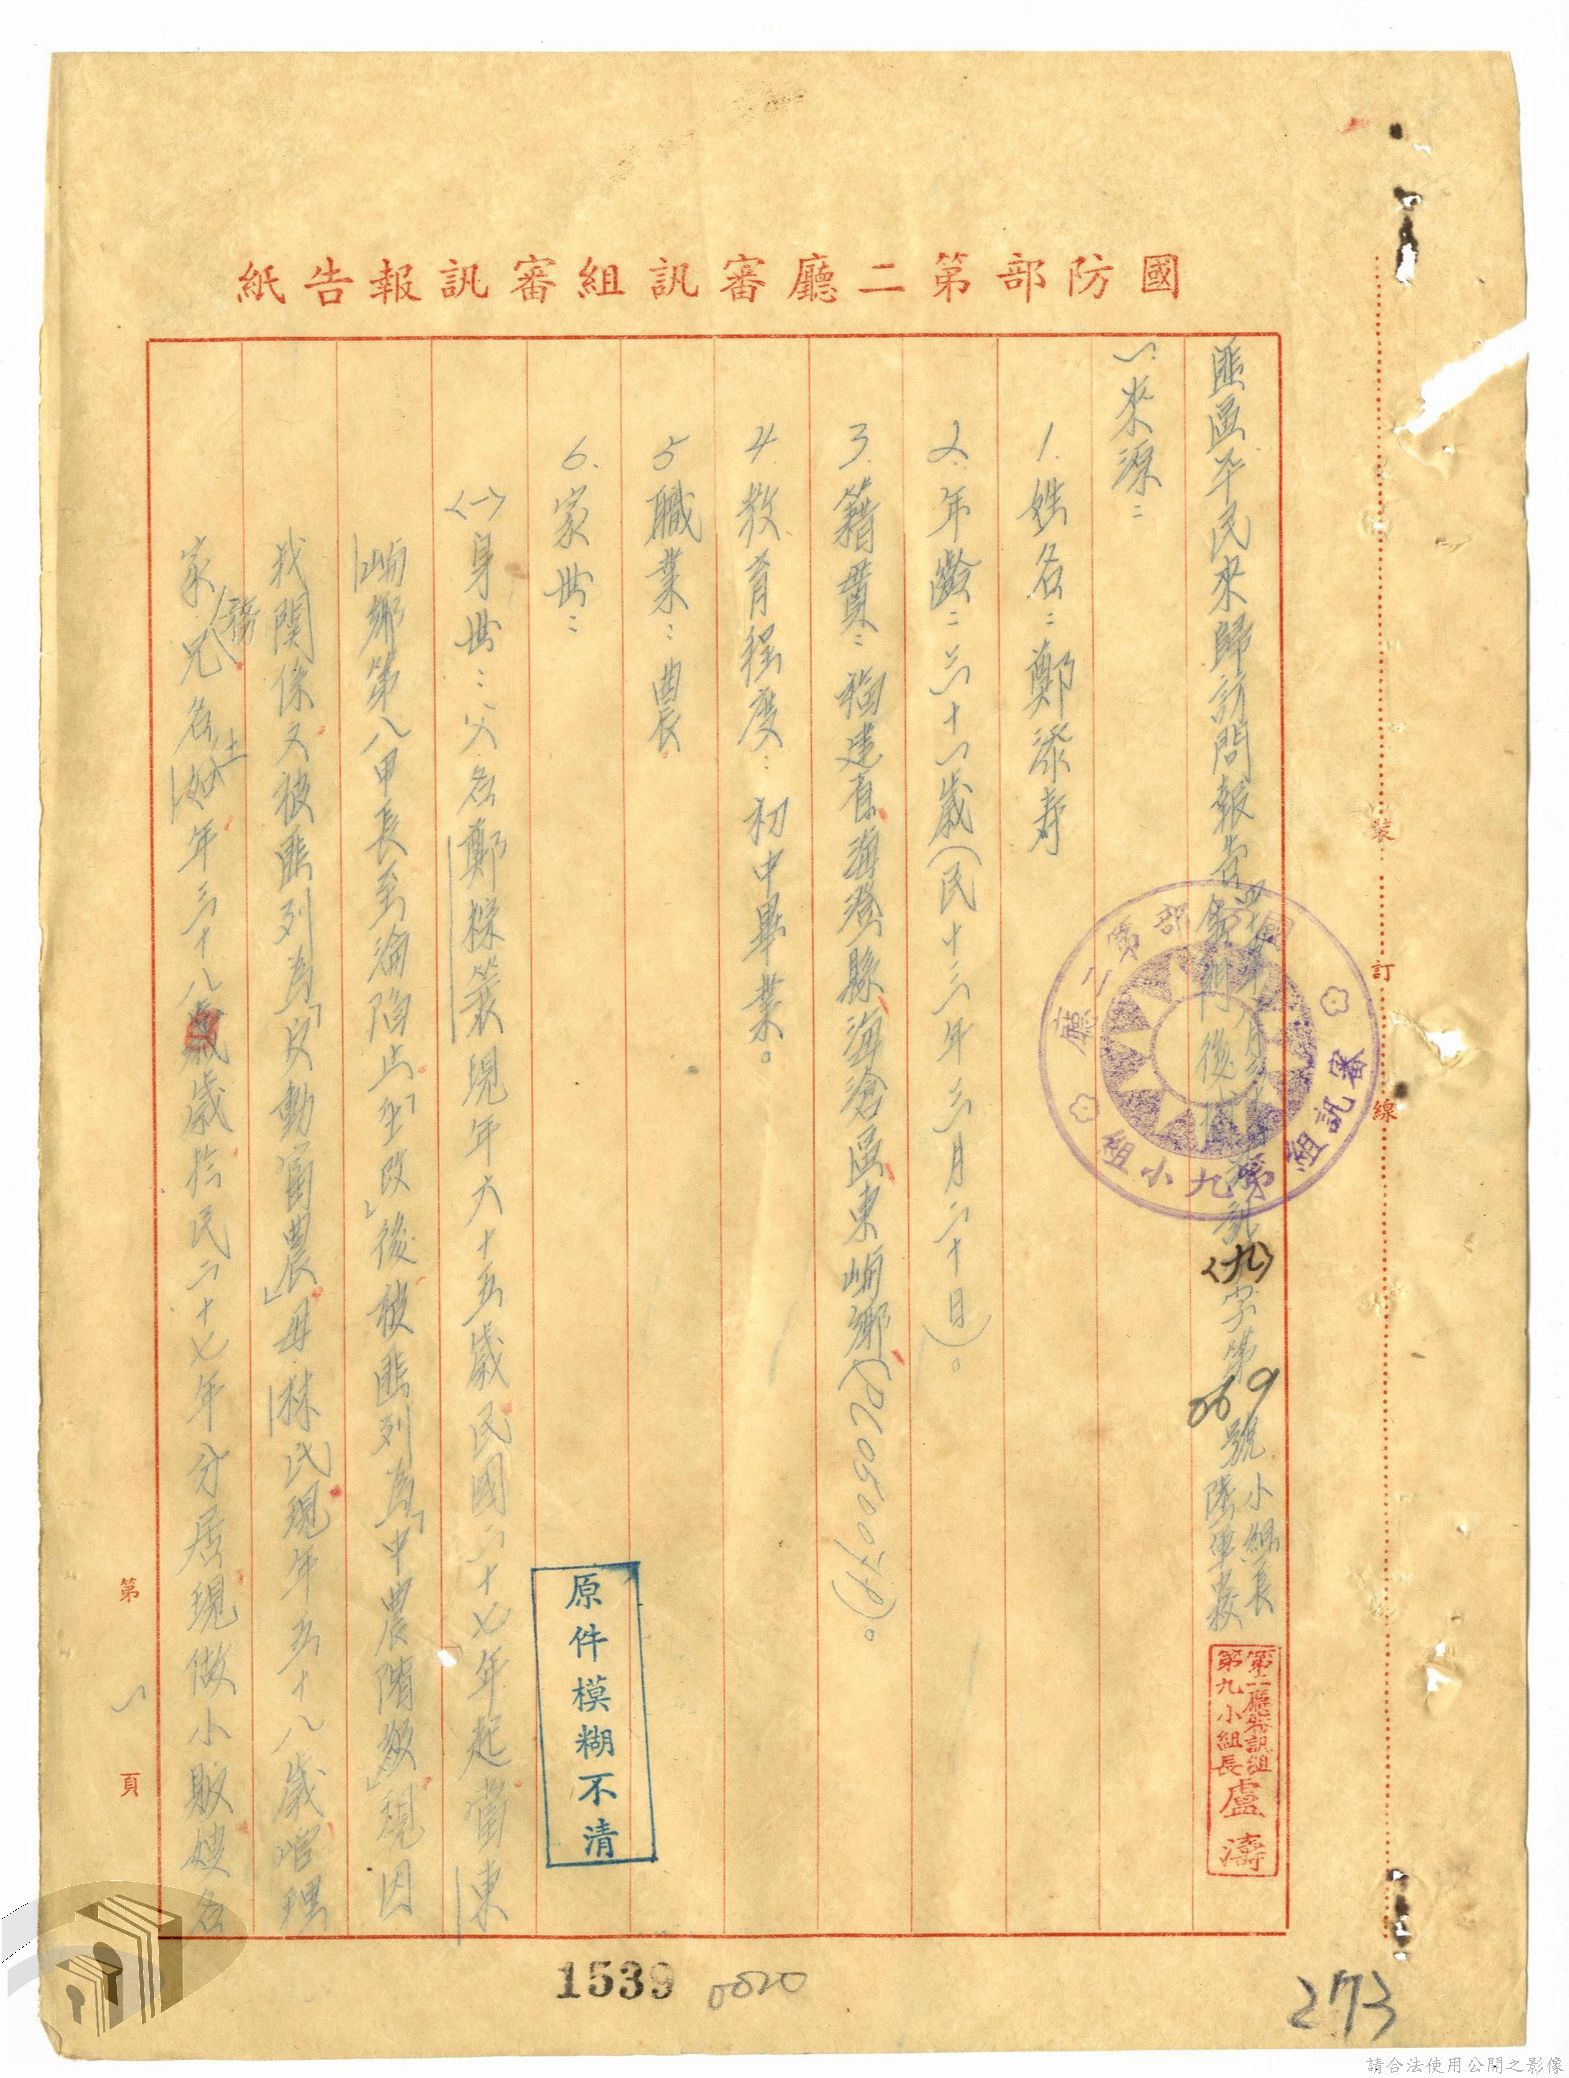 國防部第二廳審訊組審訊報告紙
匪區平民來歸訪問報告
後
字第069號
小組長
陸軍
第二廳審訊組
第九小組長
盧濤
國防部第二廳
審訊組第九小組
一、來源：
1. 姓名：鄭添寿
2. 年齡：二十一歲（民十三年三月二十日）。
3. 籍貫：福建省海澄縣海滄區東嶼鄉
4. 教育程度：初中畢業。
5 職業：農
6. 家世：
〈一〉身世：父名鄭 現年六十五歲民國二十七年起當東
嶼鄉第八甲長至淪陷止「土改」後被匪列為「中農階級」現因
我関係又被匪列為「反動富農」母林氏現年五十八歲管理
家務兄名 年三十八歲 民二十七年分居現做小販嫂名
原件模糊不清
裝
訂
線
第一頁
1539
0020
273
請合法使用公開之影像